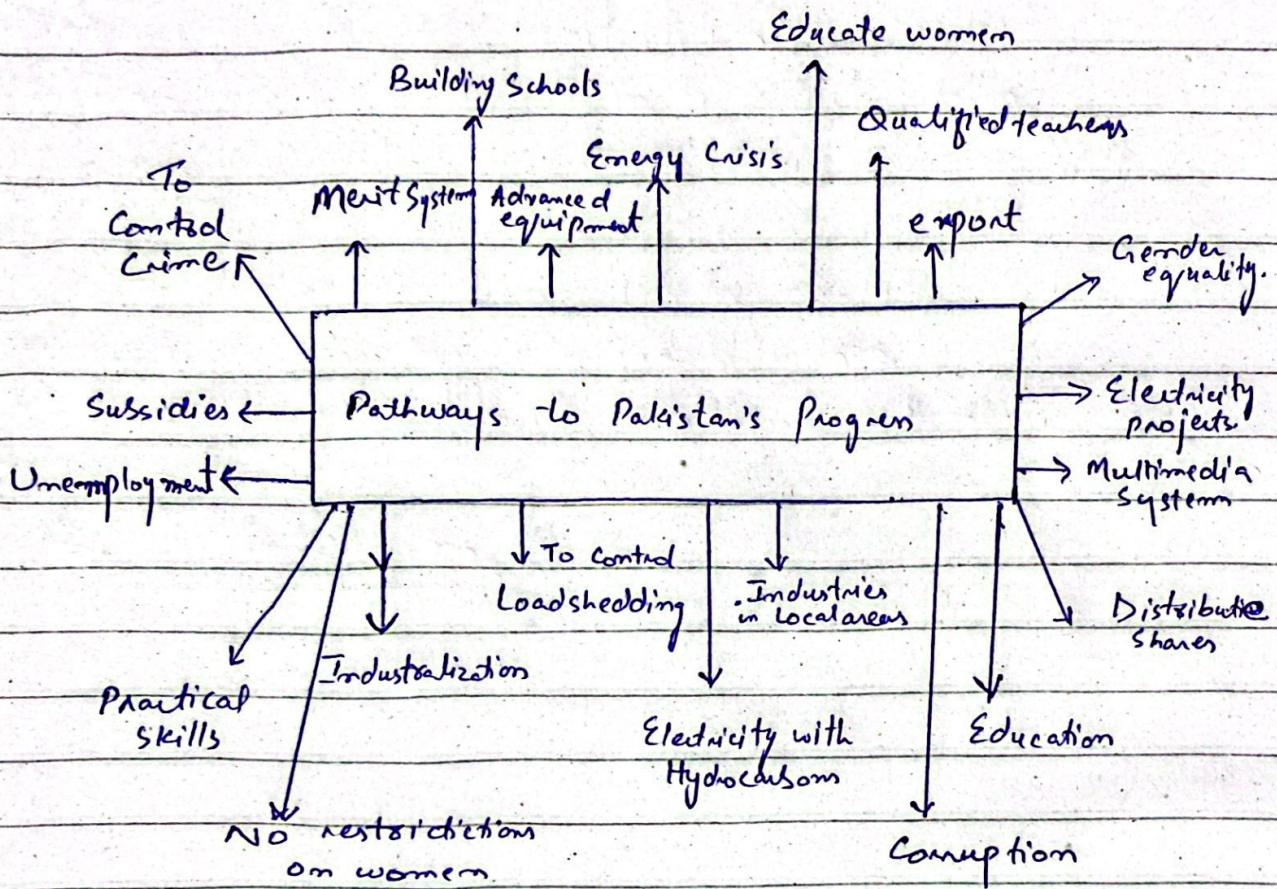 Educate women
Building Schools
Qualified teachers
Energy Crisis
To
Control
Crime
Merit System
Advanced
equipment
export
Gender
equality.
Subsidies
Pathways to Pakistan's Progress
Electricity
projects
Unemployment
Multimedia
System
To control
Loadshedding
Industries
in Local areas
Distribute
Shares
Industralization
Practical
Skills
Electricity with
Hydrocarbons
Education
No restridictions
on women
Corruption